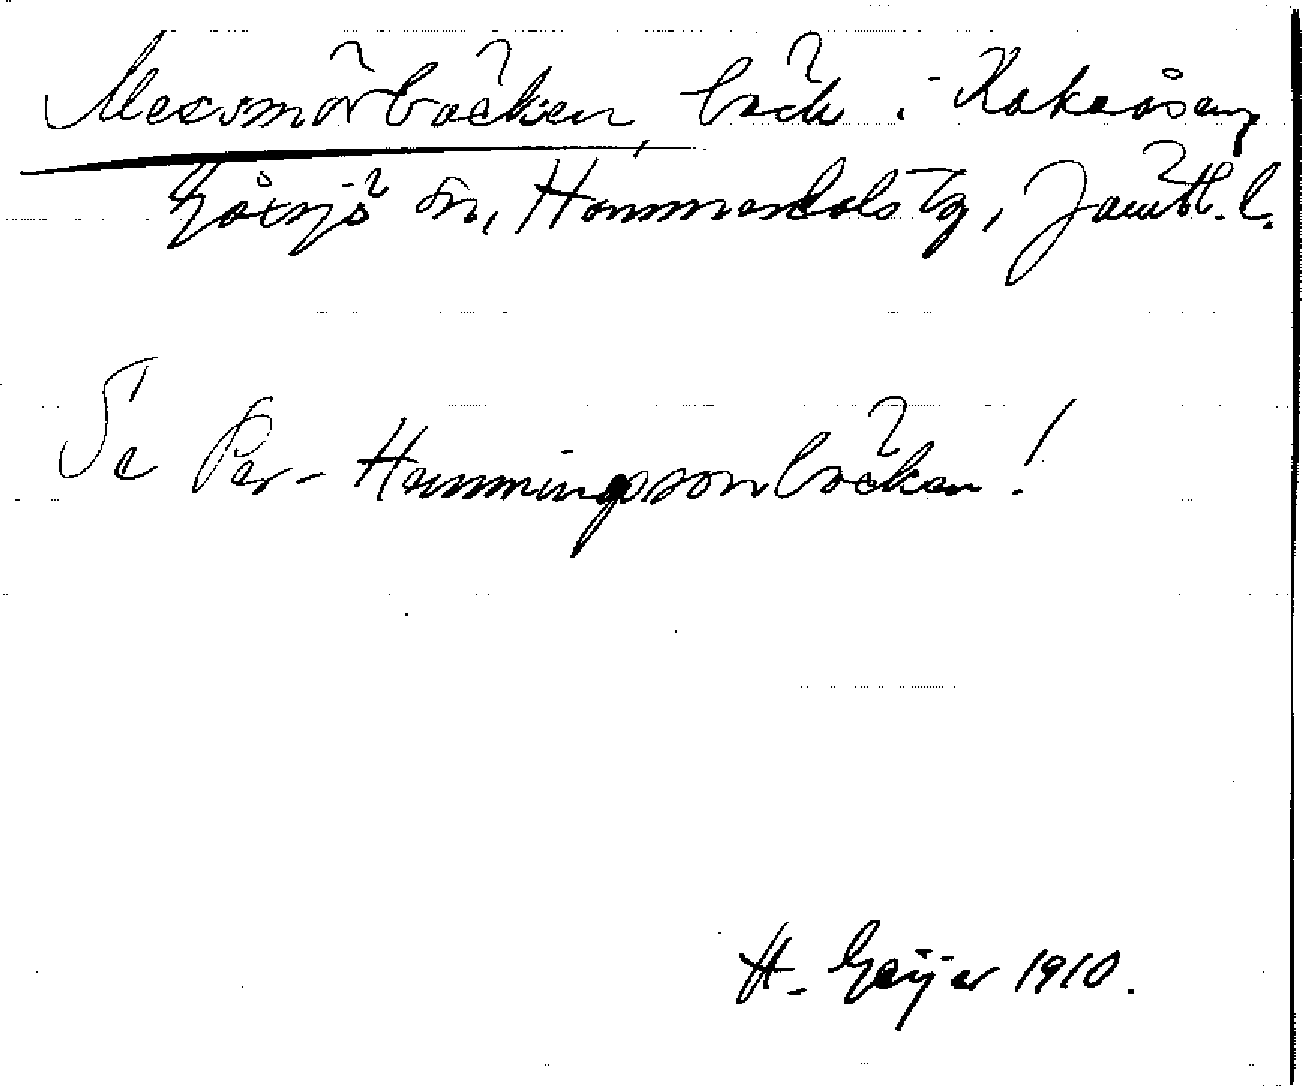 Messmörbäcken, bäck i Kakuåsen,
Gåxsjö sn, Hammerdals tg, Jämtl. l.
Se Per-Hemmingsonbäcken!
H. Geijer 1910.